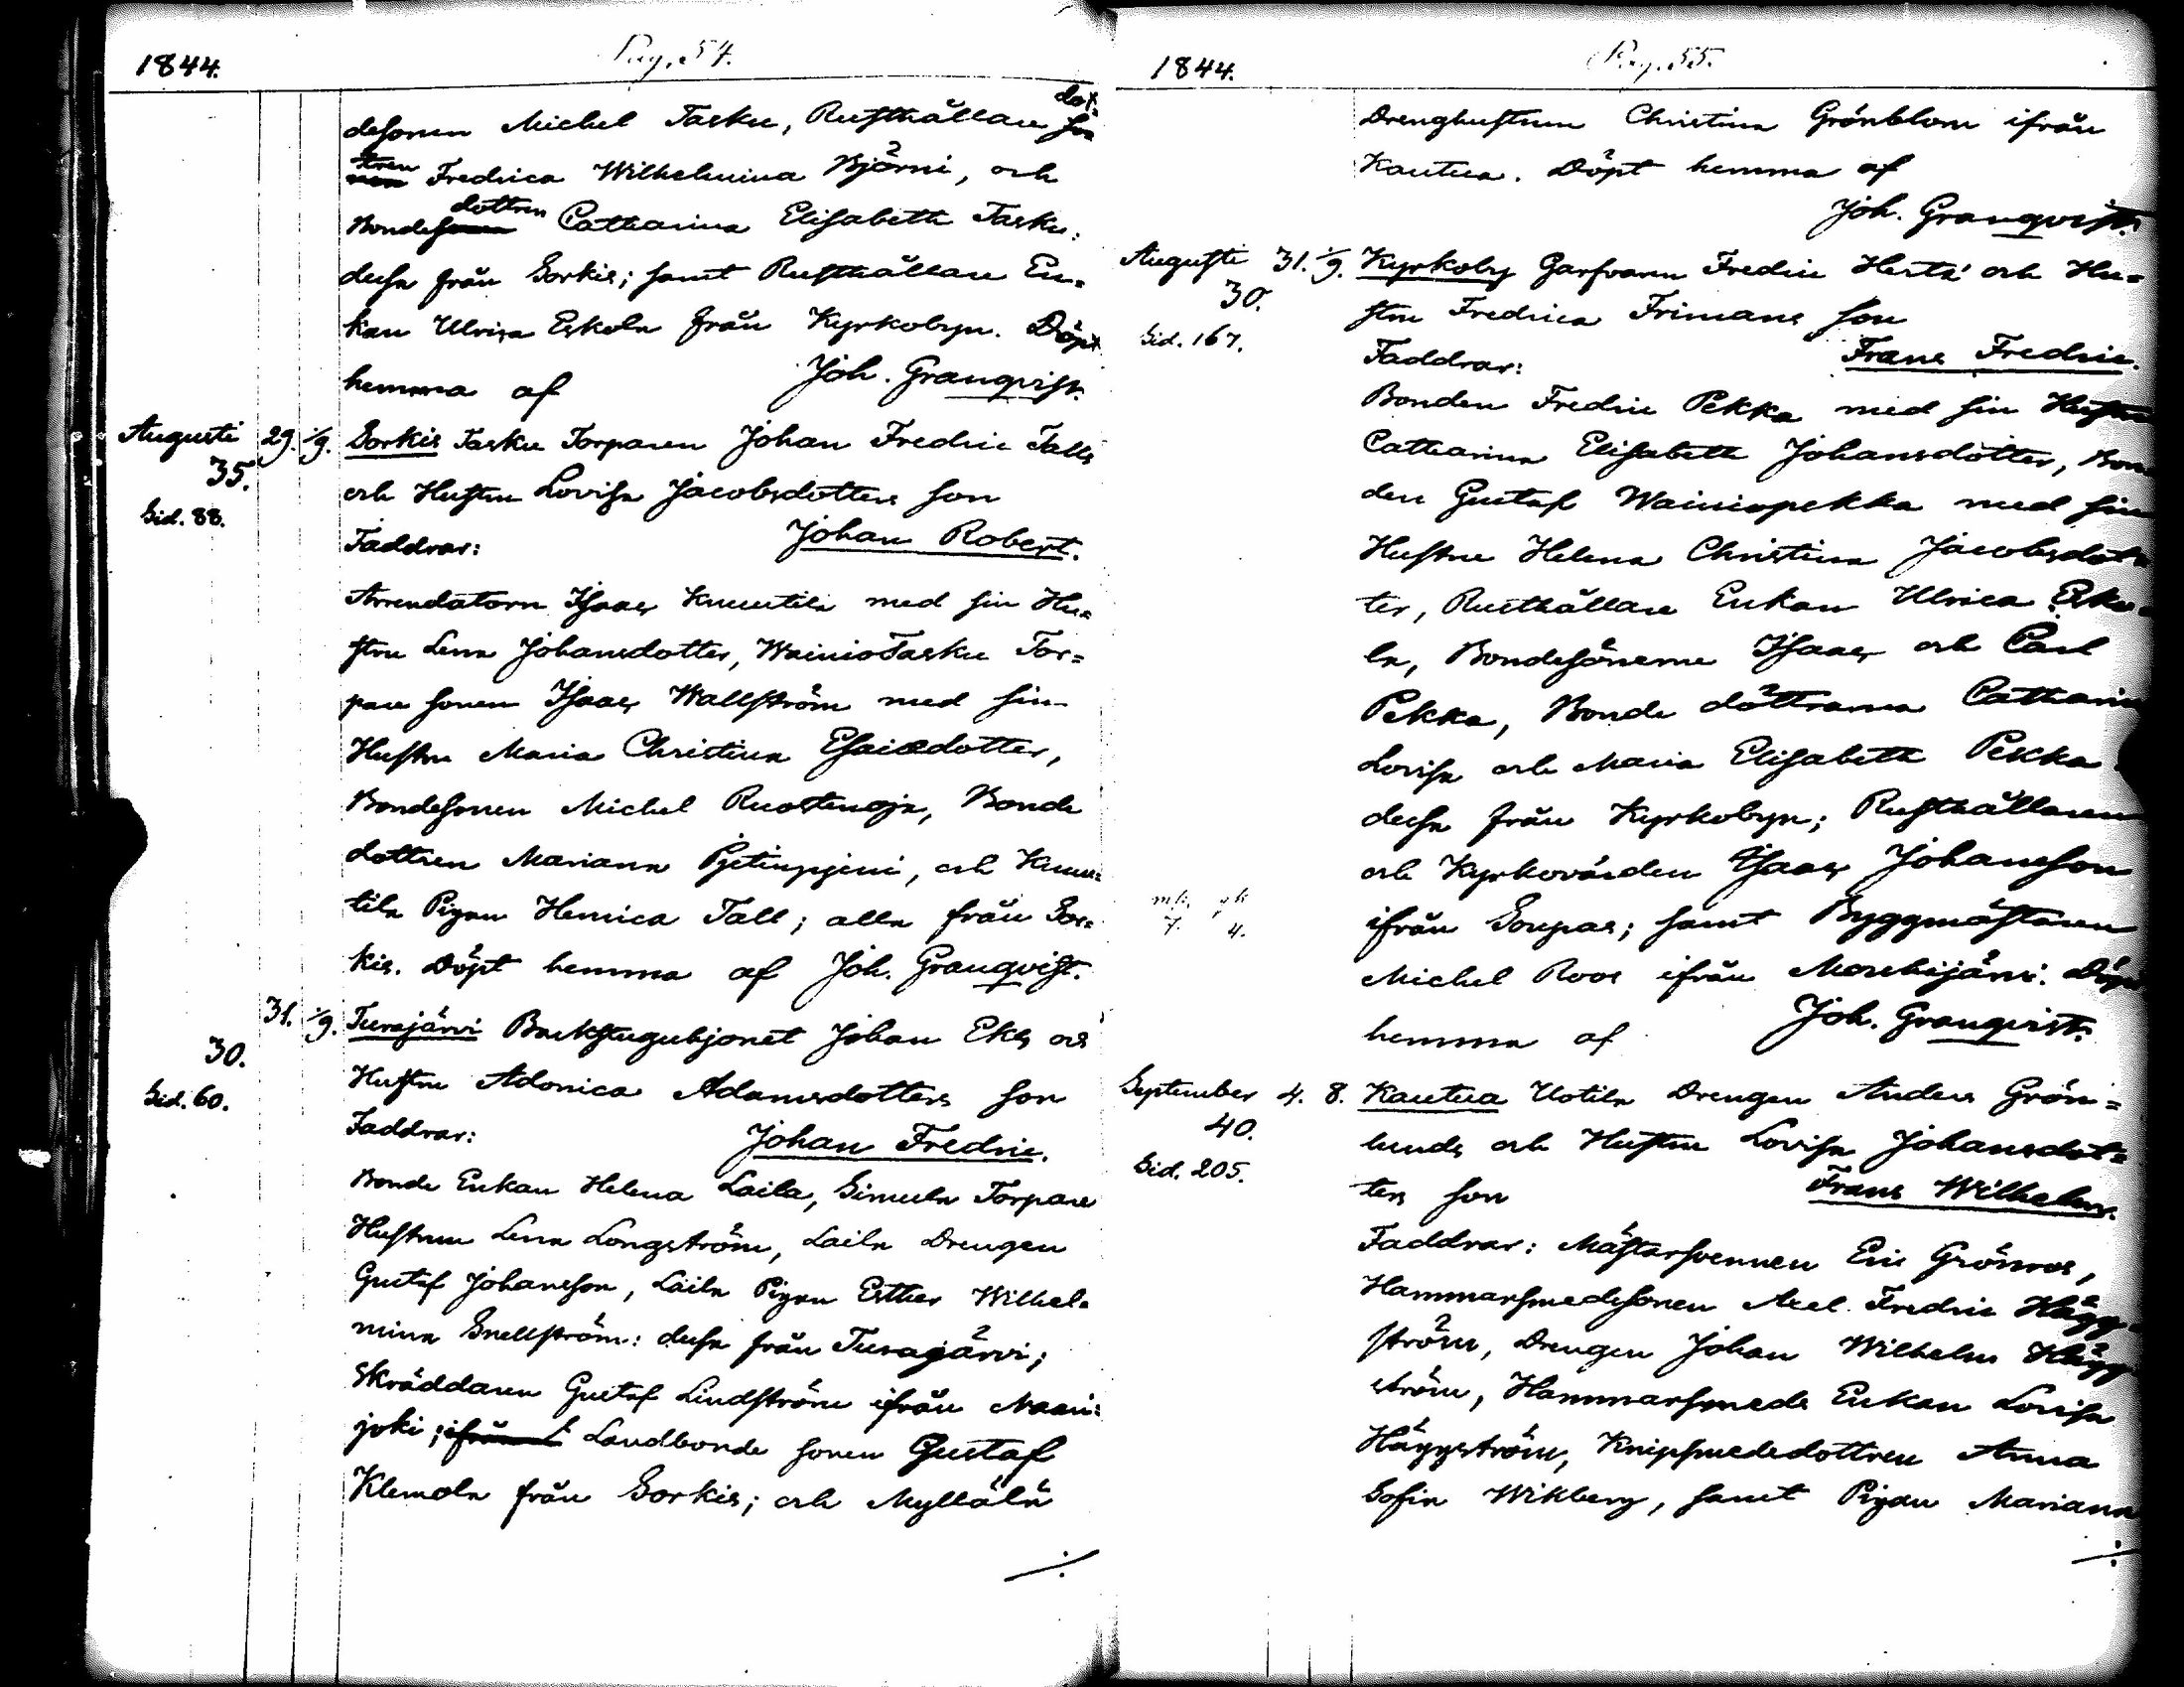 1844.
Pag. 54.
desonen Michel Tasku, Rusthållare dot
tren Fredrica Wilhelmina Björni, och
Bondedottren Catharina Elisabeth Tasku:
dessa från Sorkis; samt Rusthållare En-
kan Ulrica Eskola från Kyrkobyn. Döpt
hemma af Joh. Granqvist.
Augusti 29. 1/9. Sorkis Tasku Torparen Johan Fredric Talls
35. och Hustru Lovisa Jacobsdotters son
Sid. 88.
Faddrar: Johan Robert.
Arrendatorn Isaac Knuutila med sin Hu=
stru Lena Johansdotter, WainioTasku Tor=
pare sonen Isaac Wallström med sin
Hustru Maria Christina Esaiædotter,
Bondesonen Michel Ruostenoja, Bonde
dottren Mariana Pjetinpjeni, och Knuu=
tila Pigan Henrica Tall; alla från Sor=
kis. Döpt hemma af Joh. Granqvist.
31. 1/9. Turajärvi Backstuguhjonet Johan Eks och
30. Hustru Adonica Adamsdotters son
Sid. 60.
Faddrar: Johan Fredric.
Bonde Enkan Helena Laila, Simula Torpare
Hustrun Lena Longström, Laila Drengen
Gustaf Johansson, Laila Pigan Esther Wilhel=
mina Snellström: dessa från Turajärvi;
Skräddaren Gustaf Lindström ifrån Naari=
joki; Landbonde sonen Gustaf
Klemola från Sorkis; och Myllälä
./.
1844.
Pag. 55.
Drenghustrun Christina Grönblom ifrån
Kautua. Döpt hemma af
Joh. Granqvist.
Augusti 31. 1/9. Kyrkoby Garfvaren Fredric Hertz' och Hu=
30. stru Fredrica Frimans son
Sid. 167.
Faddrar: Frans Fredric.
Bonden Fredric Pekka med sin Hustru
Catharina Elisabeth Johansdotter, Bon
den Gustaf Wainiopekka med sin
Hustru Helena Christina Jacobsdot=
ter, Rusthållare Enkan Ulrica Esko=
la, Bondesönerne Isaac och Carl
Pekka, Bonde döttrarna Catharina
Lovisa och Maria Elisabeth Pekka:
dessa från Kyrkobyn; Rusthållaren
och Kyrkovärden Isaac Johansson
mk. qk.
7. 4.
ifrån Soupas; samt Byggmästaren
Michel Roos ifrån Mosebijärvi. Döpt
hemma af Joh. Granqvist.
September 4. 8. Kautua Uotila Drengen Anders Grön=
40. lunds och Hustru Lovisa Johansdot=
Sid. 205.
ters son Frans Wilhelm.
Faddrar: Mästarsvennen Eric Grönros,
Hammarsmedssonen Axel Fredric Hägg=
ström, Drengen Johan Wilhelm Hägg
ström, Hammarsmeds Enkan Lovisa
Häggström, Knipsmedsdottren Anna
Sofia Wikberg, samt Pigan Mariana
./.